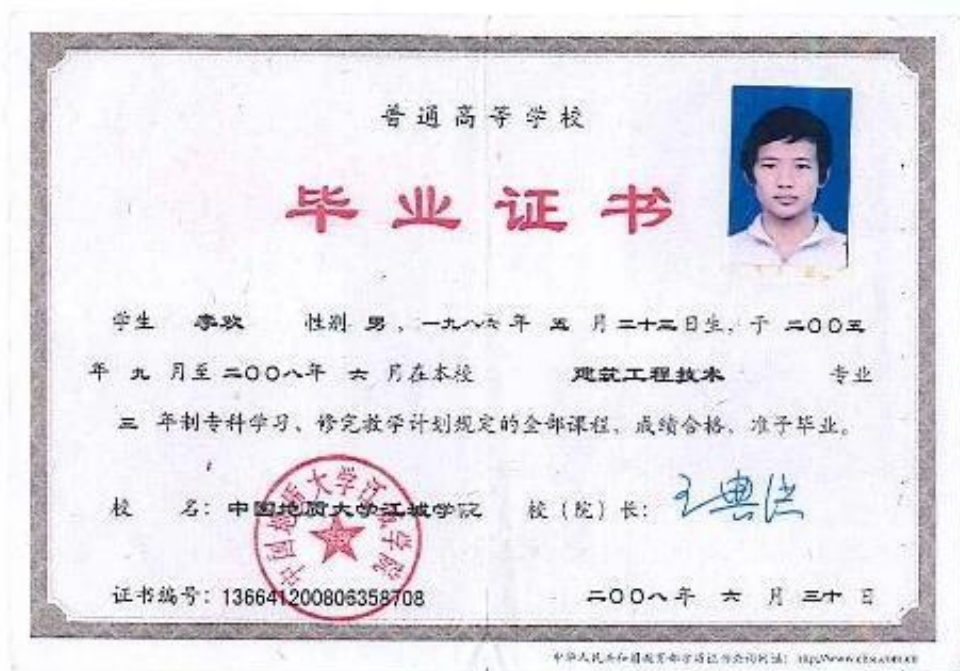 普通高等学校
毕业证书
学生 李欢 性别 男，一九八六年 五 月二十三日生，于 二〇〇五
年 九 月至 二〇〇八年 六 月在本校 建筑工程技术 专业
三 年制专科学习、修完教学计划规定的全部课程、成绩合格、准予毕业。
校 名：中国地质大学江城学院 校（院）长：王典洪
中国地质大学江城学院
证书编号：136641200806358708 二〇〇八年 六 月 三十 日
中华人民共和国教育部学历证书查询网址：http://www.chsi.com.cn